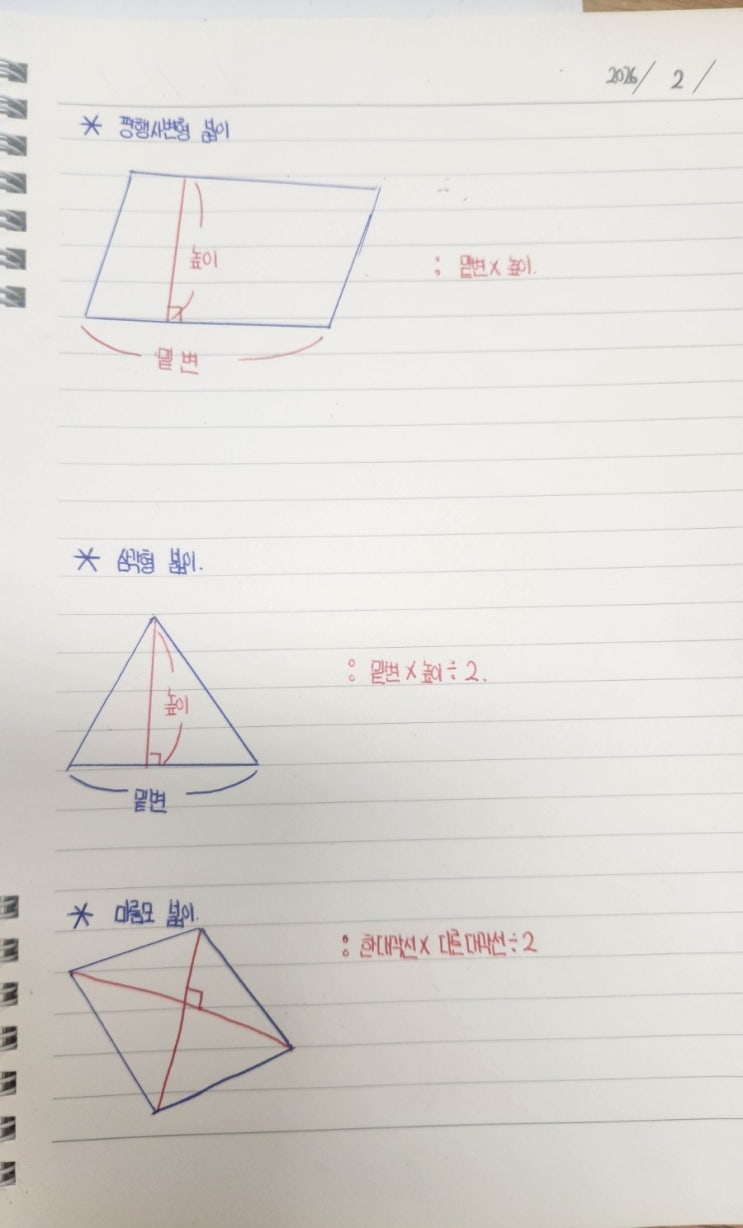 2026/ 2 /
* 평행사변형 넓이
높이
: 밑변 × 높이.
밑변
* 삼각형 넓이.
: 밑변 × 높이 ÷ 2.
높이
밑변
* 마름모 넓이.
: 한대각선 × 다른대각선 ÷ 2